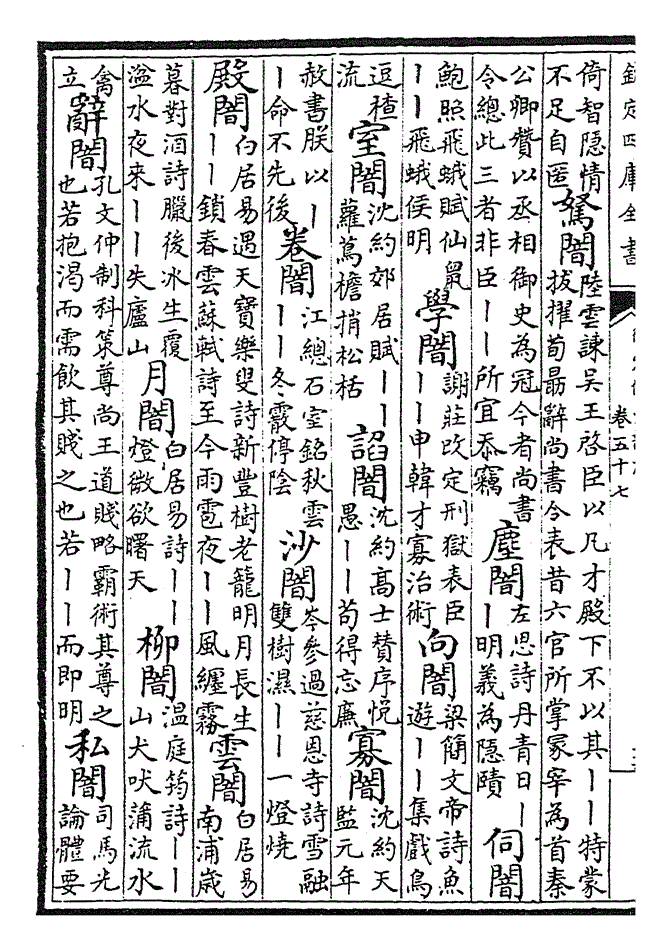 欽定四庫全書
卷五十七
倚智隱情
不足自匿
駑闇
陸雲諫吳王啓臣以凡才殿下不以其丨丨特蒙
拔擢荀勗辭尚書令表昔六官所掌冢宰為首秦
公卿贊以丞相御史為冠今者尚書
令總此三者非臣丨丨所宜忝竊
塵闇
左思詩丹青日丨
丨明義為隱賾
伺闇
鮑照飛蛾賦仙鼠
丨丨飛蛾侯明
學闇
謝莊改定刑獄表臣
丨丨申韓才寡治術
向闇
梁簡文帝詩魚
遊丨丨集戲鳥
逗楂
流
室闇
沈約郊居賦丨丨
蘿蔦檐捎松栝
諂闇
沈約高士贊序悦
愚丨丨苟得忘廉
寡闇
沈約天
監元年
赦書朕以丨
丨命不先後
卷闇
江總石室銘秋雲
丨丨冬霰停陰
沙闇
岑參過慈恩寺詩雪融
雙樹濕丨丨一燈燒
殿闇
白居易遇天寶樂叟詩新豐樹老籠明月長生
丨丨鎖春雲蘇軾詩至今雨雹夜丨丨風纏霧
雲闇
白居易
南浦歲
暮對酒詩臘後冰生覆
湓水夜來丨丨失廬山
月闇
白居易詩丨丨
燈微欲曙天
柳闇
温庭筠詩丨丨
山犬吠蒲流水
禽
立
辭闇
孔文仲制科策尊尚王道賤略霸術其尊之
也若抱渴而需飲其賤之也若丨丨而即明
私闇
司馬光
論體要